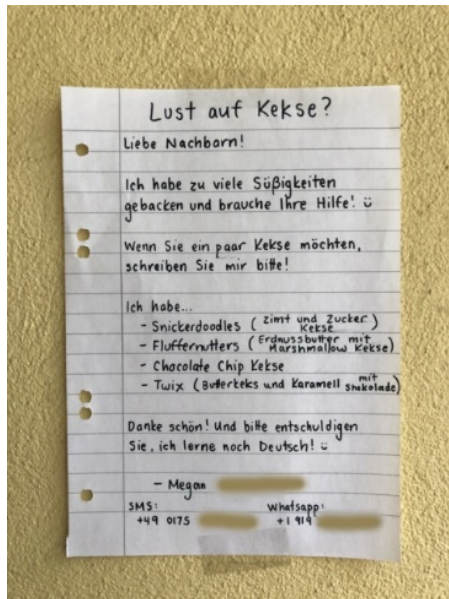 Lust auf Kekse?
Liebe Nachbarn!
Ich habe zu viele Süßigkeiten
gebacken und brauche Ihre Hilfe! ü
Wenn Sie ein paar Kekse möchten,
schreiben Sie mir bitte!
Ich habe...
- Snickerdoodles (Zimt und Zucker Kekse)
- Fluffernutters (Erdnussbutter mit Marshmallow Kekse)
- Chocolate Chip Kekse
- Twix (Butterkeks und Karamell mit Shokolade)
Danke schön! Und bitte entschuldigen
Sie, ich lerne noch Deutsch! ü
- Megan
SMS: Whatsapp:
+49 0175 +1 919